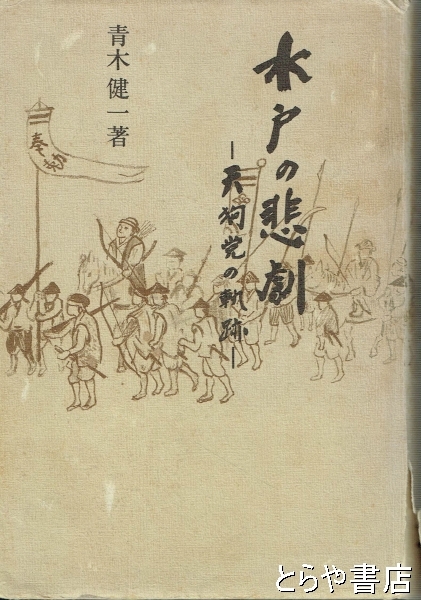 水戸の悲劇
―天狗党の軌跡―
青木健一著
奉勅
とらや書店